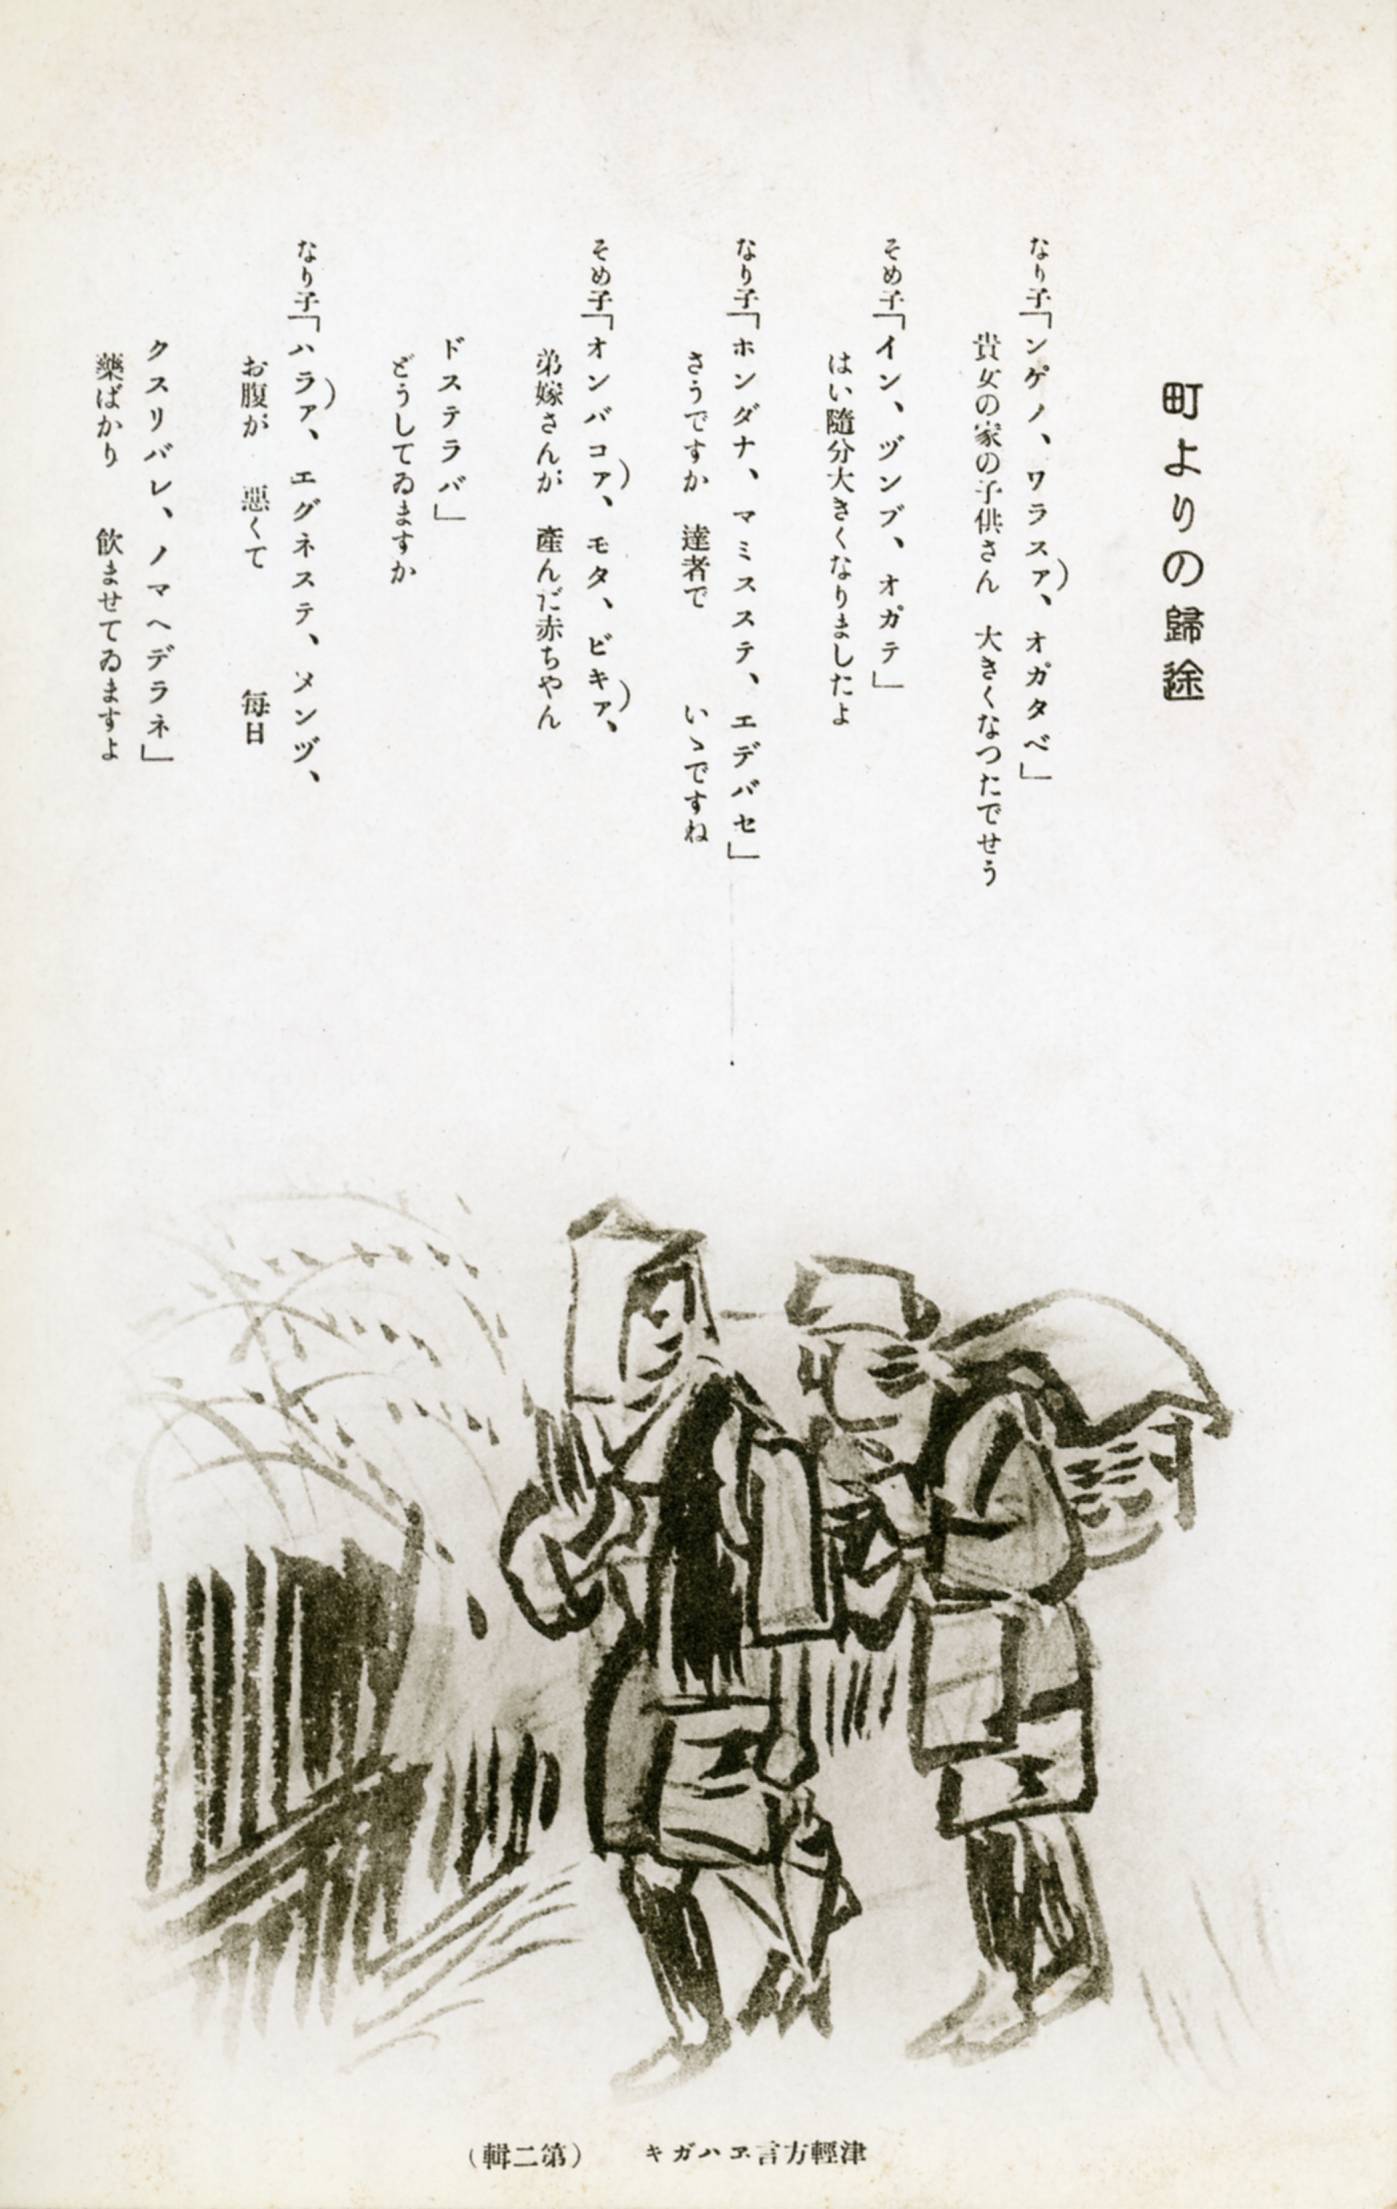 町よりの歸途
なり子「ンゲノ、ワラスァ、オガタベ」
貴女の家の子供さん　大きくなつたでせう
そめ子「イン、ヅンブ、オガテ」
はい隨分大きくなりましたよ
なり子「ホンダナ、マミスステ、エデバセ」
さうですか　達者で　いゝですね
そめ子「オンバコァ、モタ、ビキァ、
弟嫁さんが　產んだ赤ちやん
ドステラバ」
どうしてゐますか
なり子「ハラァ、エグネステ、メンヅ、
お腹が　惡くて　每日
クスリバレ、ノマヘデラネ」
藥ばかり　飮ませてゐますよ
津輕方言ヱハガキ　（第二輯）